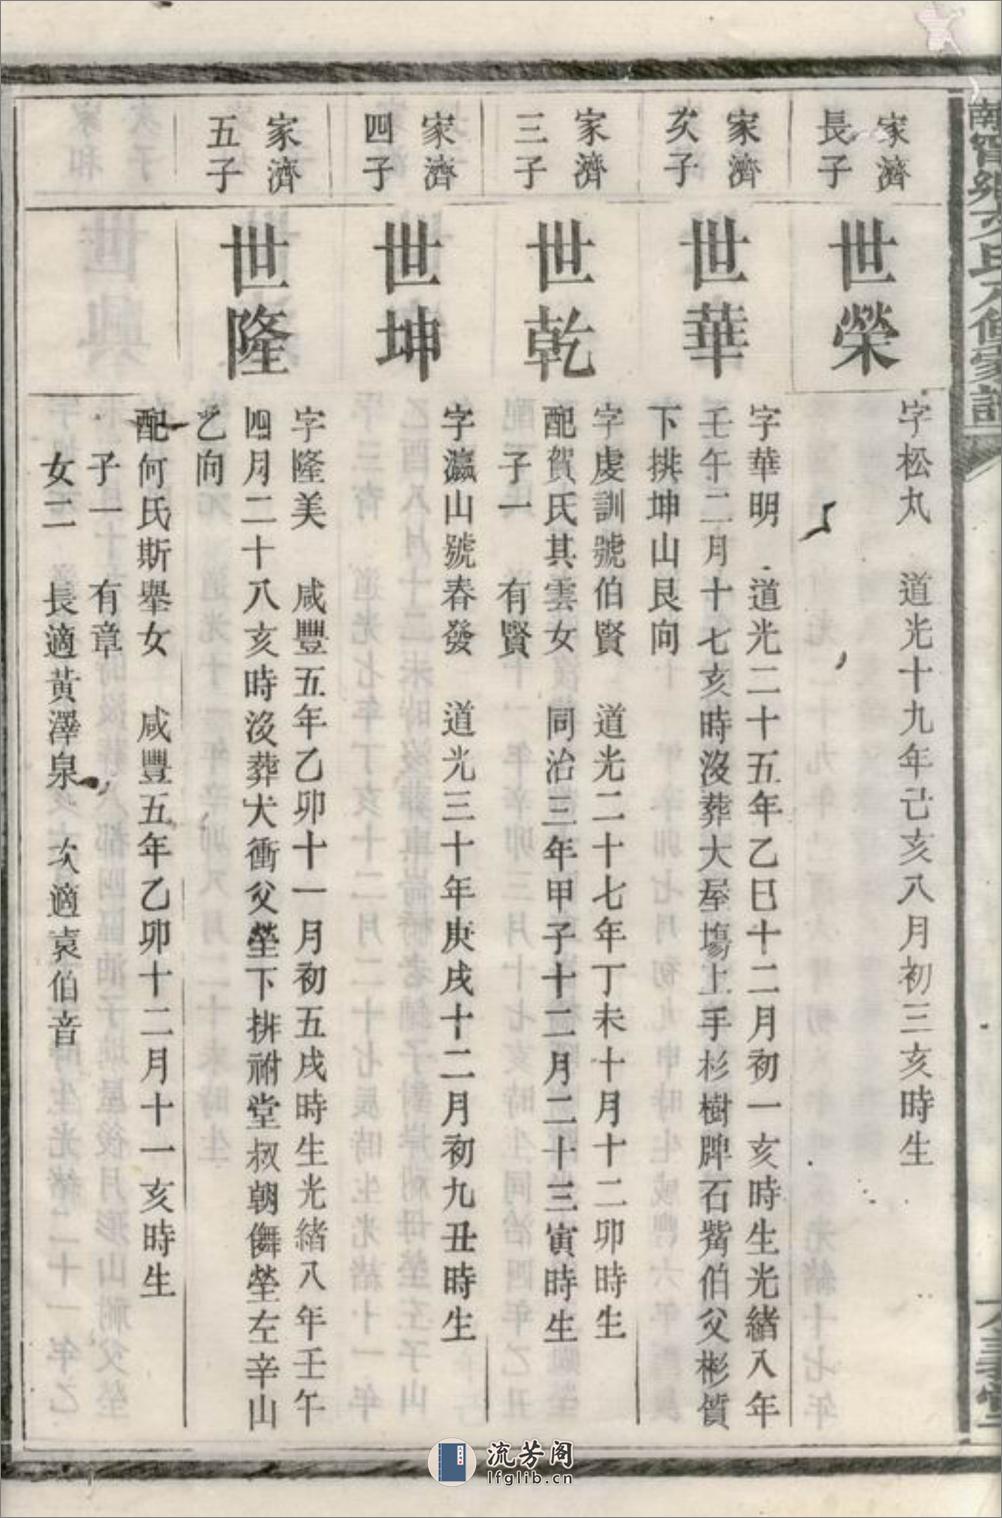 家濟
長子
世榮
字松丸 道光十九年己亥八月初三亥時生
家濟
次子
世華
字華明 道光二十五年乙巳十二月初一亥時生光緒八年
壬午二月十七亥時沒葬大屋塲上手杉樹牌石觜伯父彬質
下排坤山艮向
家濟
三子
世乾
字虔訓號伯賢 道光二十七年丁未十月十二卯時生
配賀氏其雲女 同治三年甲子十二月二十三寅時生
子一 有賢
家濟
四子
世坤
字瀛山號春發 道光三十年庚戌十二月初九丑時生
家濟
五子
世隆
字隆美 咸豐五年乙卯十一月初五戌時生光緒八年壬午
四月二十八亥時沒葬大衝父塋下排祔堂叔朝儛塋左辛山
乙向
配何氏斯舉女 咸豐五年乙卯十二月十一亥時生
子一 有章
女二 長適黃澤泉 次適袁伯音
流芳阁
lfglib.cn